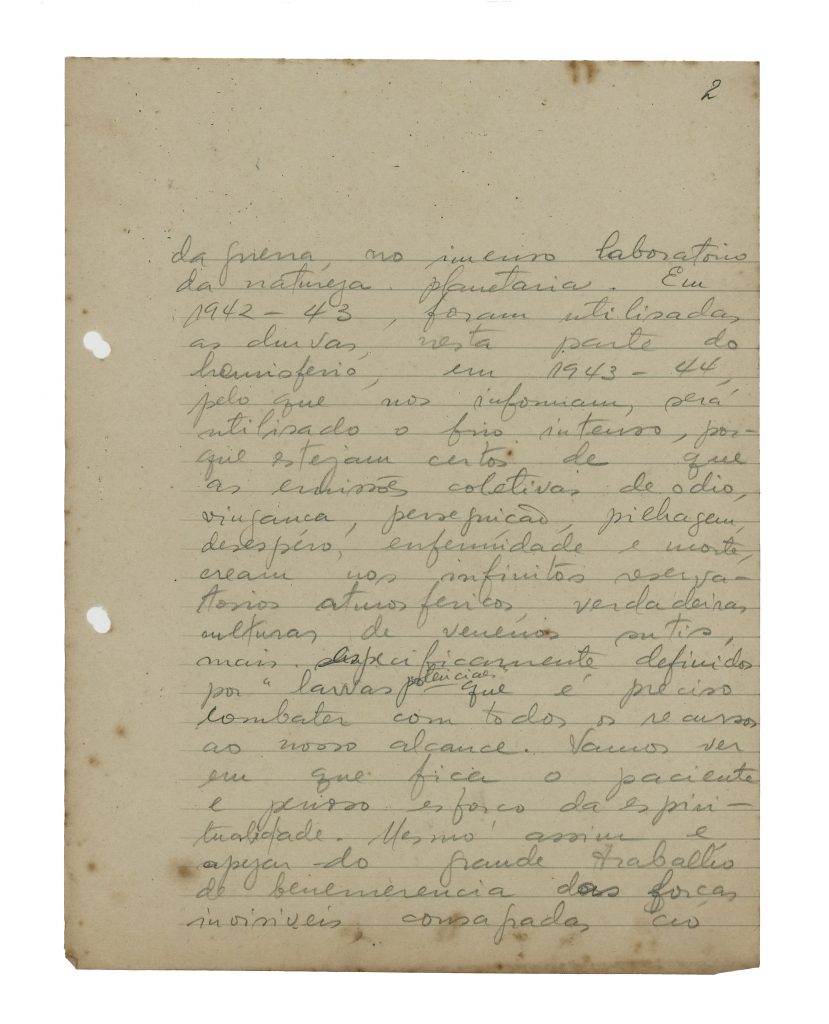 2
da guerra, no imenso laboratorio
da natureza planetaria. Em
1942 - 43, foram utilisadas
as chuvas, nesta parte do
hemisferio, em 1943 - 44,
pelo que nos informam, será
utilisado o frio intenso, por-
que estejam certos de que
as emissões coletivas de odio,
vingança, perseguicão, pilhagem,
desespéro, enfermidade e morte,
cream nos infinitos reserva-
torios atmosfericos, verdadeiras
culturas de venenos sutis,
mais especificamente definidos
por "larvas potenciaes" que é preciso
combater com todos os recursos
ao nosso alcance. Vamos ver
em que fica o paciente
e penoso esforco da espiri-
tualidade. Mesmo assim e,
apezar do grande trabalho
de benemerencia das forcas
invisiveis, consagradas ao